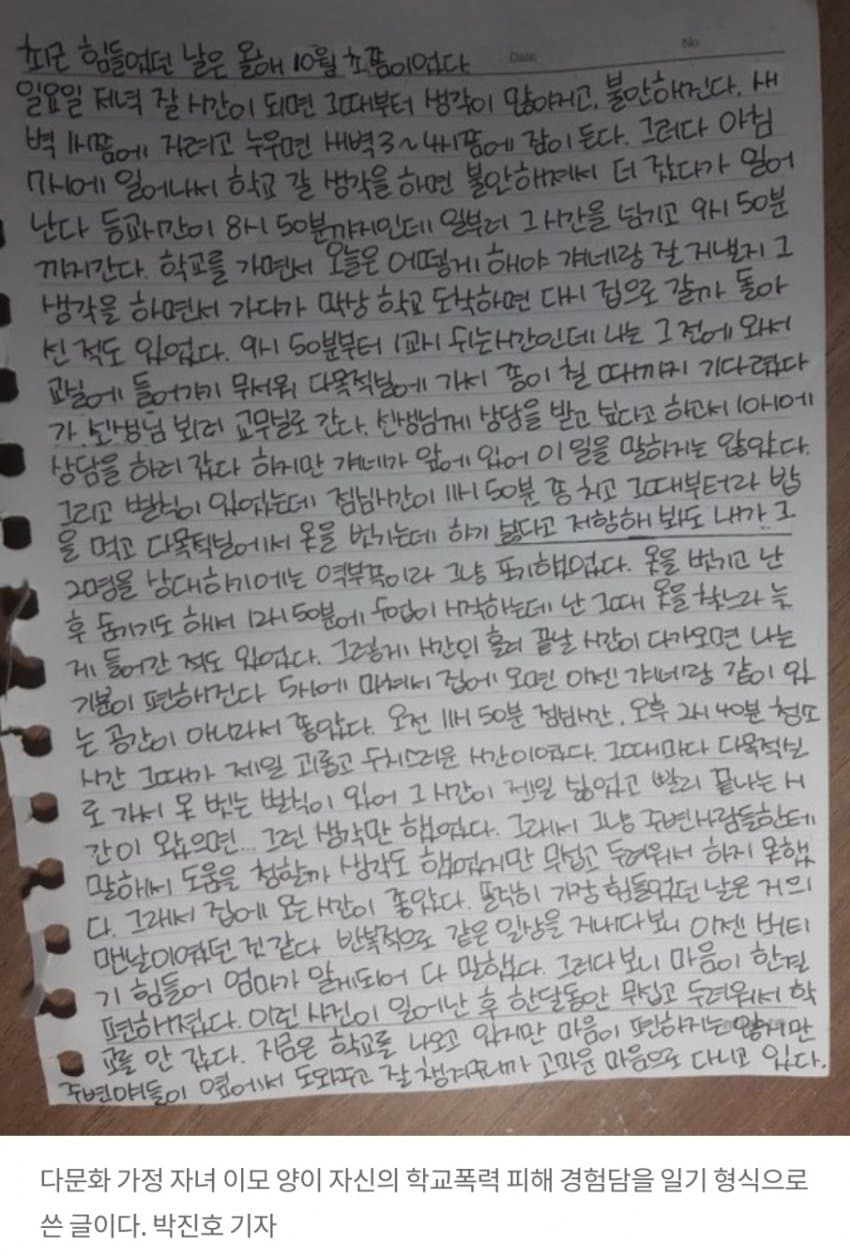 No
Date
최근 힘들었던 날은 올해 10월 초쯤이었다
일요일 저녁 잘 시간이 되면 그때부터 생각이 많아지고, 불안해진다. 새
벽 1시쯤에 자려고 누우면 새벽 3~4시쯤에 잠이 든다. 그러다 아침
7시에 일어나서 학교 갈 생각을 하면 불안해져서 더 잤다가 일어
난다 등교시간이 8시 50분까지인데 일부러 그 시간을 넘기고 9시 50분
까지간다. 학교를 가면서 오늘은 어떻게 해야 걔네랑 잘 지낼지 그
생각을 하면서 가다가 막상 학교 도착하면 다시 집으로 갈까 돌아
선 적도 있었다. 9시 50분부터 1교시 쉬는시간인데 나는 그 전에 와서
교실에 들어가기 무서워 다목적실에 가서 종이 칠 때까지 기다렸다
가 선생님 뵈러 교무실로 간다. 선생님께 상담을 받고 싶다고 하고서 10시에
상담을 하러 갔다 하지만 걔네가 앞에 있어 이 일을 말하지는 않았다.
그리고 벌칙이 있었는데 점심시간이 11시 50분 종 치고 그때부터라 밥
을 먹고 다목적실에서 옷을 벗기는데 하기 싫다고 저항해 봐도 내가 그
20명을 상대하기에는 역부족이라 그냥 포기했었다. 옷을 벗기고 난
후 숨기기도 해서 12시 50분에 수업이 시작하는데 난 그때 옷을 찾느라 늦
게 들어간 적도 있었다. 그렇게 시간이 흘러 끝날 시간이 다가오면 나는
기분이 편해진다 5시에 마쳐서 집에 오면 이젠 걔네랑 같이 있
는 공간이 아니라서 좋았다. 오전 11시 50분 점심시간, 오후 2시 40분 청소
시간 그때가 제일 괴롭고 수치스러운 시간이였다. 그때마다 다목적실
로 가서 옷 벗는 벌칙이 있어 그 시간이 제일 싫었고 빨리 끝나는 시
간이 왔으면... 그런 생각만 했었다. 그래서 그냥 주변사람들한테
말해서 도움을 청할까 생각도 했었지만 무섭고 두려워서 하지 못했
다. 그래서 집에 오는 시간이 좋았다. 솔직히 가장 힘들었던 날은 거의
맨날이였던 것 같다 반복적으로 같은 일상을 지내다보니 이젠 버티
기 힘들어 엄마가 알게되어 다 말했다. 그러다보니 마음이 한결
편해졌다. 이런 사건이 일어난 후 한달동안 무섭고 두려워서 학
교를 안 갔다. 지금은 학교를 나오고 있지만 마음이 편하지는 않지만
주변애들이 옆에서 도와주고 잘 챙겨주니까 고마운 마음으로 다니고 있다.
다문화 가정 자녀 이모 양이 자신의 학교폭력 피해 경험담을 일기 형식으로
쓴 글이다. 박진호 기자